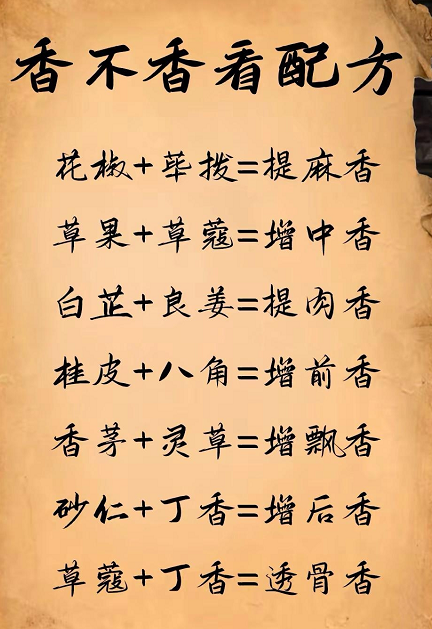 香不香看配方
花椒+荜拨=提麻香
草果+草蔻=增中香
白芷+良姜=提肉香
桂皮+八角=增前香
香茅+灵草=增飘香
砂仁+丁香=增后香
草蔻+丁香=透骨香